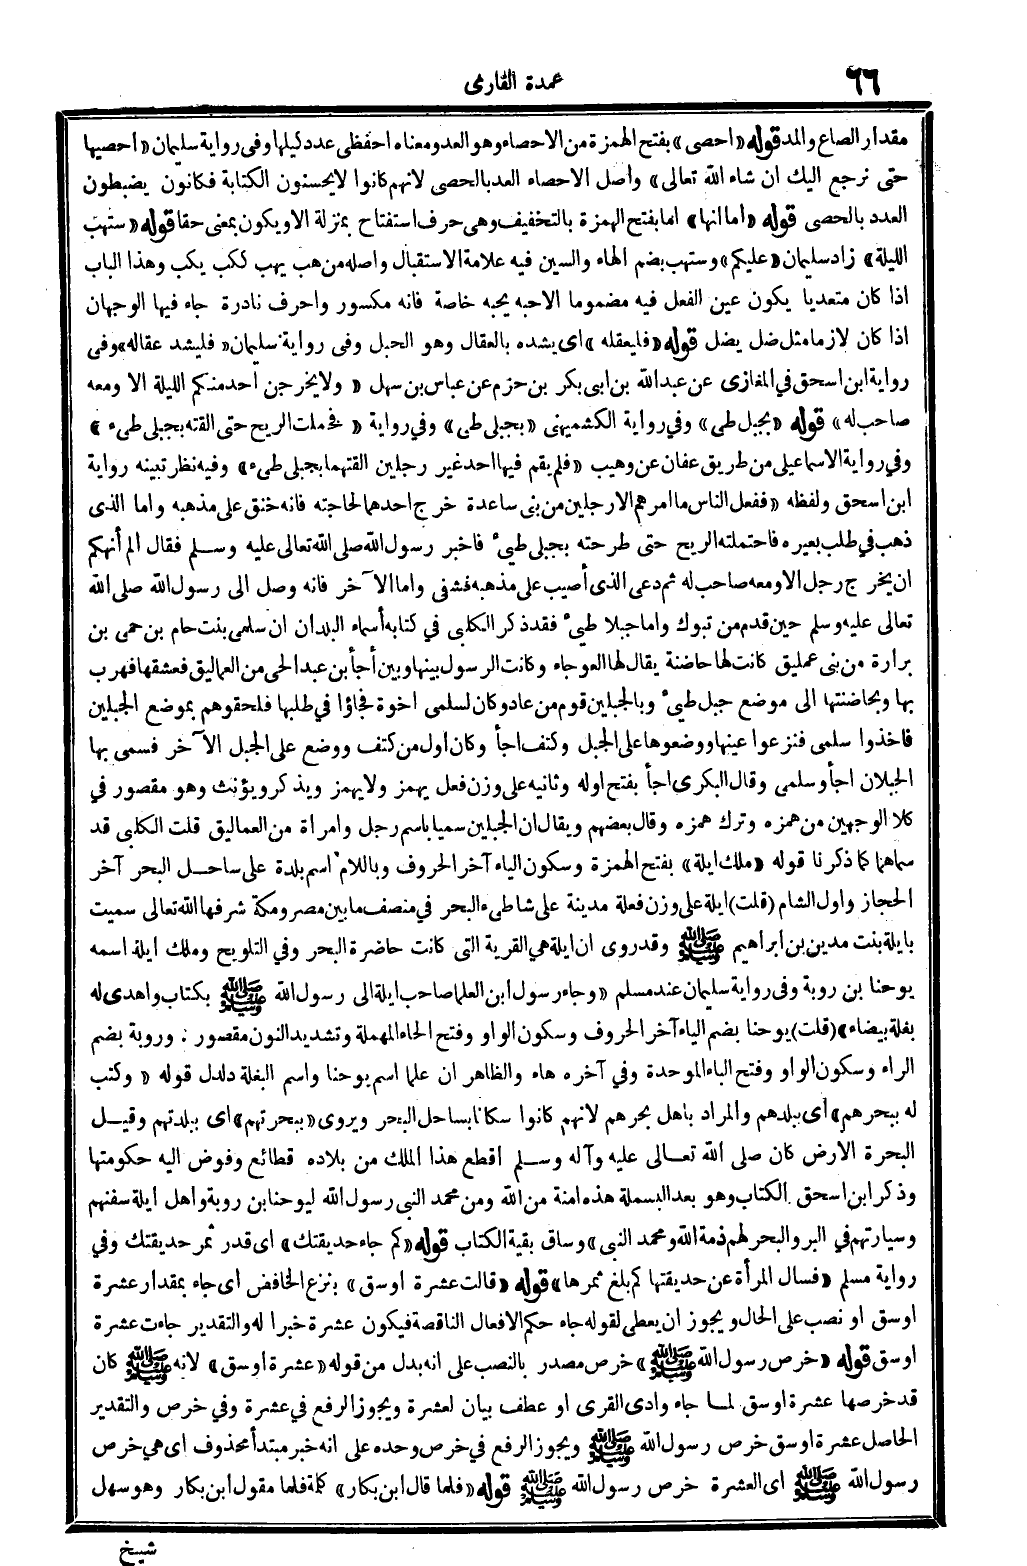 ٦٦
عمدة القارى
مقدار الصاع والمد قوله «احصى» بفتح الهمزة من الاحصاء وهو العد ومعناه احفظى عدد كيلها وفى رواية سليمان «احصيها
حتى نرجع اليك ان شاء الله تعالى» وأصل الاحصاء العد بالحصى لانهم كانوا لا يحسنون الكتابة فكانون يضبطون
العدد بالحصى قوله «أما انها» اما بفتح الهمزة بالتخفيف وهى حرف استفتاح بمنزلة الا ويكون بمعنى حقا قوله «ستهب
الليلة» زاد سليمان «عليكم» وستهب بضم الهاء والسين فيه علامة الاستقبال واصله من هب يهب ككب يكب وهذا الباب
اذا كان متعديا يكون عين الفعل فيه مضموما الا حبه يحبه خاصة فانه مكسور واحرف نادرة جاء فيها الوجهان
اذا كان لازما مثل ضل يضل قوله «فليعقله» اى يشده بالعقال وهو الحبل وفى رواية سليمان «فليشد عقاله» وفى
رواية ابن اسحق في المغازى عن عبد الله بن ابى بكر بن حزم عن عباس بن سهل «ولا يخرجن احد منكم الليلة الا ومعه
صاحب له» قوله «بجبل طى» وفي رواية الكشميهنى «بجبلى طى» وفي رواية «فحملت الريح حتى القته بجبلى طىء»
وفى رواية الاسماعيلى من طريق عفان عن وهيب «فلم يقم فيها احد غير رجلين القتهما بجبلى طىء» وفيه نظر تبينه رواية
ابن اسحق ولفظه «ففعل الناس ما امرهم الا رجلين من بنى ساعدة خرج احدهما لحاجته فانه خنق على مذهبه واما الذى
ذهب في طلب بعيره فاحتملته الريح حتى طرحته بجبلى طيء فاخبر رسول الله صلى الله تعالى عليه وسلم فقال ألم أنهكم
ان يخرج رجل الا ومعه صاحب له ثم دعى الذى أصيب على مذهبه فشفى واما الآخر فانه وصل الى رسول الله صلى الله
تعالى عليه وسلم حين قدم من تبوك واما جبلا طيء فقد ذكر الكلبى في كتابه أسماء البلدان ان سلمى بنت حام بن حمى بن
برارة من بنى عمليق كانت لها حاضنة يقال لها العوجاء وكانت الرسول بينها وبين أجأ بن عبد الحى من العماليق فعشقها فهرب
بها وبحاضنتها الى موضع جبل طيء وبالجبلين قوم من عاد وكان لسلمى اخوة فجاؤا في طلبها فلحقوهم بموضع الجبلين
فاخذوا سلمى فنزعوا عينها ووضعوها على الجبل وكتف اجأ وكان اول من كتف ووضع على الجبل الآخر فسمى بها
الجبلان اجأ وسلمى وقال البكرى اجأ بفتح اوله وثانيه على وزن فعل يهمز ولا يهمز ويذكر ويؤنث وهو مقصور في
كلا الوجهين من همزه وترك همزه وقال بعضهم ويقال ان الجبلين سميا باسم رجل وامرأة من العماليق قلت الكلبى قد
سماهما كما ذكرنا قوله «ملك ايلة» بفتح الهمزة وسكون الياء آخر الحروف وباللام اسم بلدة على ساحل البحر آخر
الحجاز واول الشام (قلت) ايلة على وزن فعلة مدينة على شاطىء البحر في منصف ما بين مصر ومكة شرفها الله تعالى سميت
بايلة بنت مدين بن ابراهيم ﷺ وقد روى ان ايلة هي القرية التى كانت حاضرة البحر وفي التلويح وملك ايلة اسمه
يوحنا بن روبة وفى رواية سليمان عند مسلم «وجاء رسول ابن العلما صاحب ايلة الى رسول الله ﷺ بكتاب واهدى له
بغلة بيضاء» (قلت) يوحنا بضم الياء آخر الحروف وسكون الواو وفتح الحاء المهملة وتشديد النون مقصور . وروبة بضم
الراء وسكون الواو وفتح الباء الموحدة وفي آخره هاء والظاهر ان علما اسم يوحنا واسم البغلة دلدل قوله «وكتب
له ببحرهم» أى ببلدهم والمراد باهل بحرهم لانهم كانوا سكانا بساحل البحر ويروى «ببحرتهم» اى ببلدتهم وقيل
البحرة الارض كان صلى الله تعالى عليه وآله وسلم أقطع هذا الملك من بلاده قطائع وفوض اليه حكومتها
وذكر ابن اسحق الكتاب وهو بعد البسملة هذه امنة من الله ومن محمد النبى رسول الله ليوحنا بن روبة واهل ايلة سفنهم
وسيارتهم في البر والبحر لهم ذمة الله ومحمد النبى» وساق بقية الكتاب قوله «كم جاء حديقتك» اى قدر ثمر حديقتك وفي
رواية مسلم «فسال المرأة عن حديقتها كم بلغ ثمرها» قوله «قالت عشرة اوسق» بنزع الخافض اى جاء بمقدار عشرة
اوسق او نصب على الحال ويجوز ان يعطى لقوله جاء حكم الافعال الناقصة فيكون عشرة خبرا له والتقدير جاءت عشرة
اوسق قوله «خرص رسول الله ﷺ» خرص مصدر بالنصب على انه بدل من قوله «عشرة اوسق» لانه ﷺ كان
قد خرصها عشرة اوسق لما جاء وادى القرى او عطف بيان لعشرة ويجوز الرفع في عشرة وفي خرص والتقدير
الحاصل عشرة اوسق خرص رسول الله ﷺ ويجوز الرفع في خرص وحده على انه خبر مبتدأ محذوف اى هي خرص
رسول الله ﷺ اى العشرة خرص رسول الله ﷺ قوله «فلما قال ابن بكار» كلمة فلما مقول ابن بكار وهو سهل
شيخ